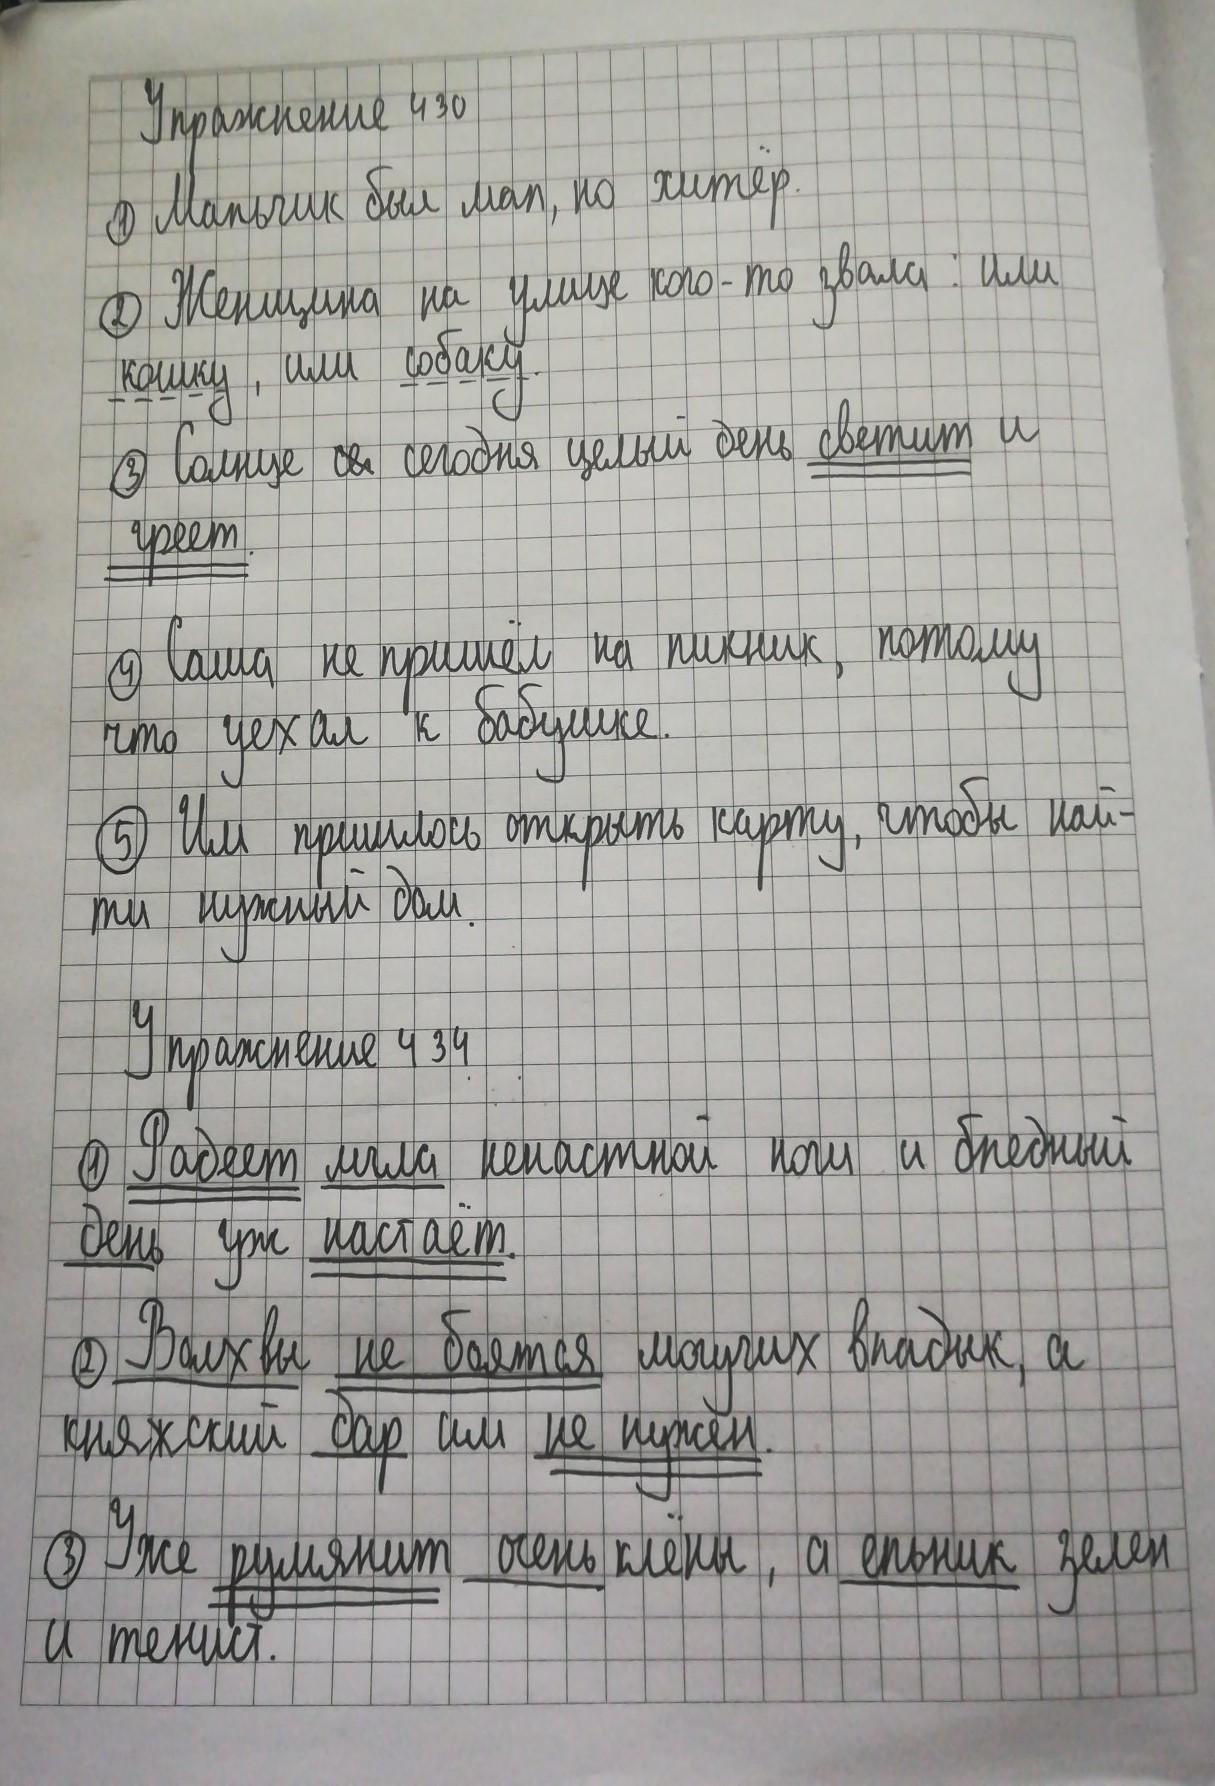 Упражнение 430
① Мальчик был мал, но хитёр.
② Женщина на улице кого-то звала: или
кошку, или собаку.
③ Солнце сегодня целый день светит и
греет.
④ Саша не пришёл на пикник, потому
что уехал к бабушке.
⑤ Им пришлось открыть карту, чтобы най-
ти нужный дом.
Упражнение 434
① Радеет мгла ненастной ночи и бледный
день уж настаёт.
② Волхвы не боятся могучих владык, а
княжский дар им не нужен.
③ Уже румянит осень клёны, а ельник зелен
и тенист.